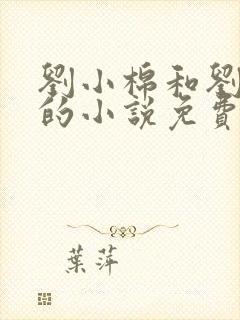 劉小棉和劉
的小說免費
葉萍